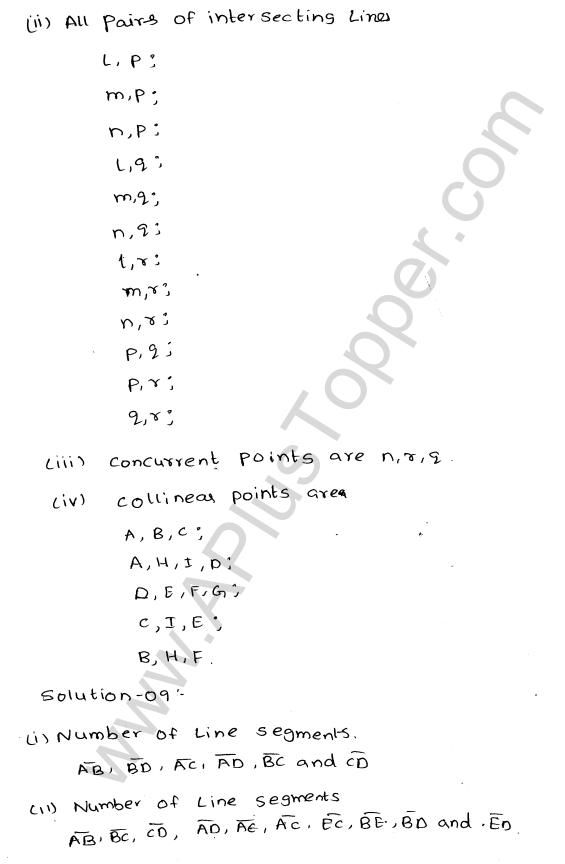 (ii) All pairs of intersecting Lines
L, P ;
m, P ;
n, P ;
L, q ;
m, q ;
n, q ;
t, r ;
m, r ;
n, r ;
P, q ;
P, r ;
q, r ;
(iii) Concurrent points are n, r, q.
(iv) collinear points area
A, B, C ;
A, H, I, D ;
D, E, F, G ;
C, I, E ;
B, H, F.
Solution-09:-
(i) Number of Line segments.
A̅B̅, B̅D̅, A̅C̅, A̅D̅, B̅C̅ and C̅D̅
(ii) Number of Line segments
A̅B̅, B̅C̅, C̅D̅, A̅D̅, A̅E̅, A̅C̅, E̅C̅, B̅E̅, B̅D̅ and .E̅D̅.
www.APlusTopper.com